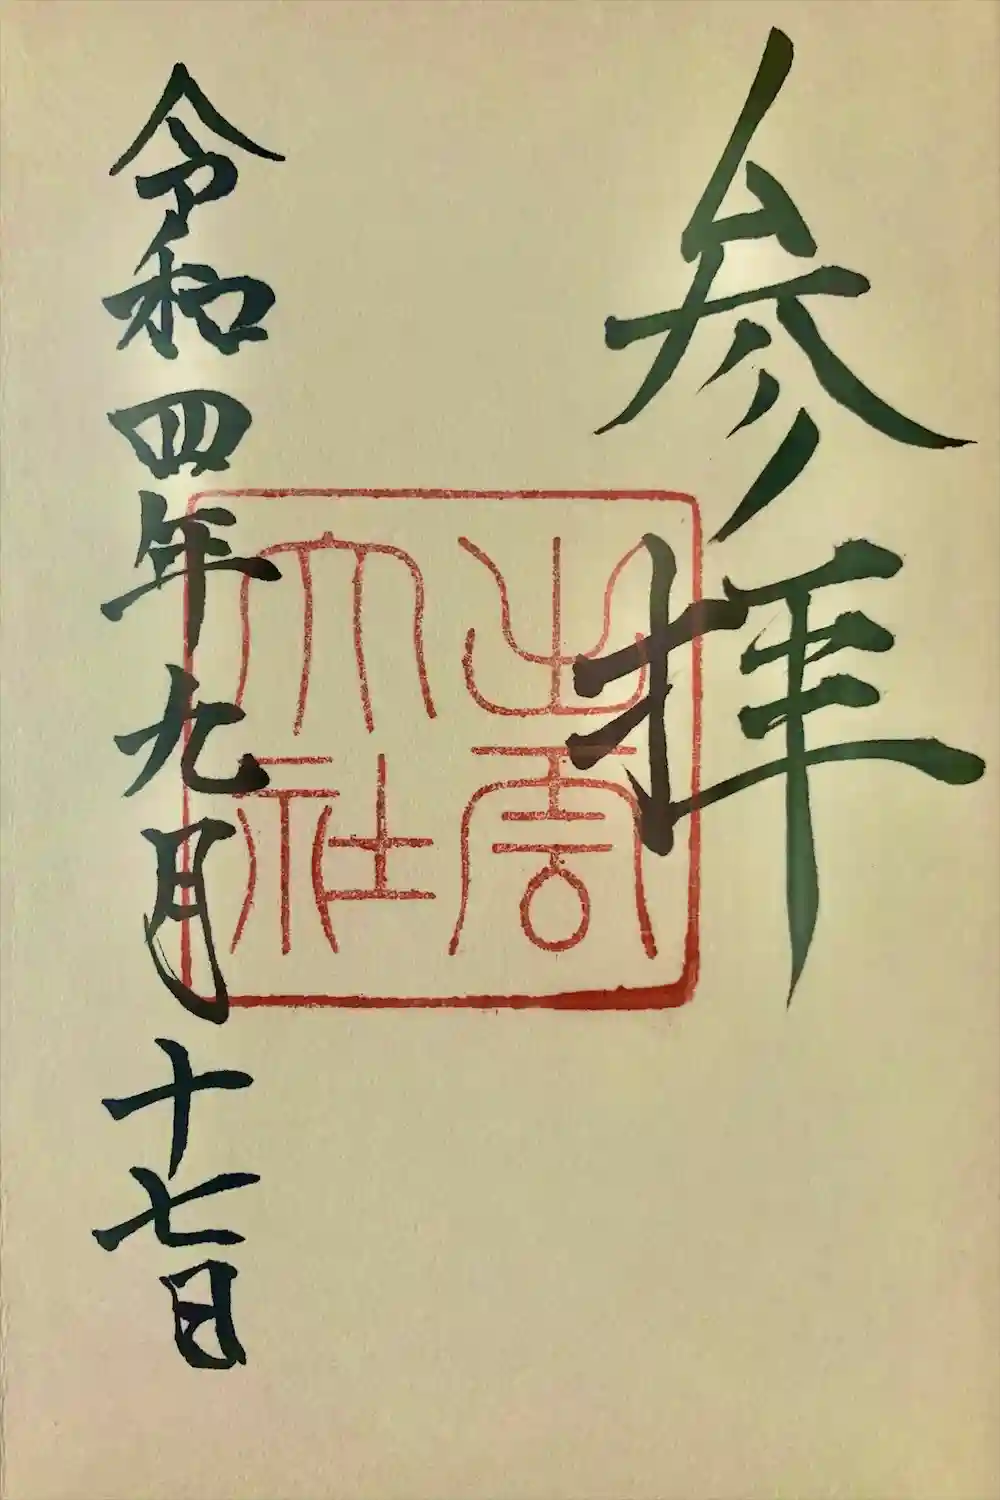 参拝
出雲
大社
令和四年九月十七日